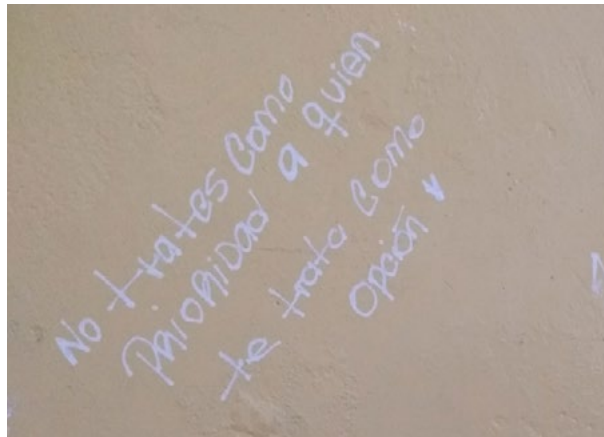 No trates como
prioridad a quien
te trata como
opción